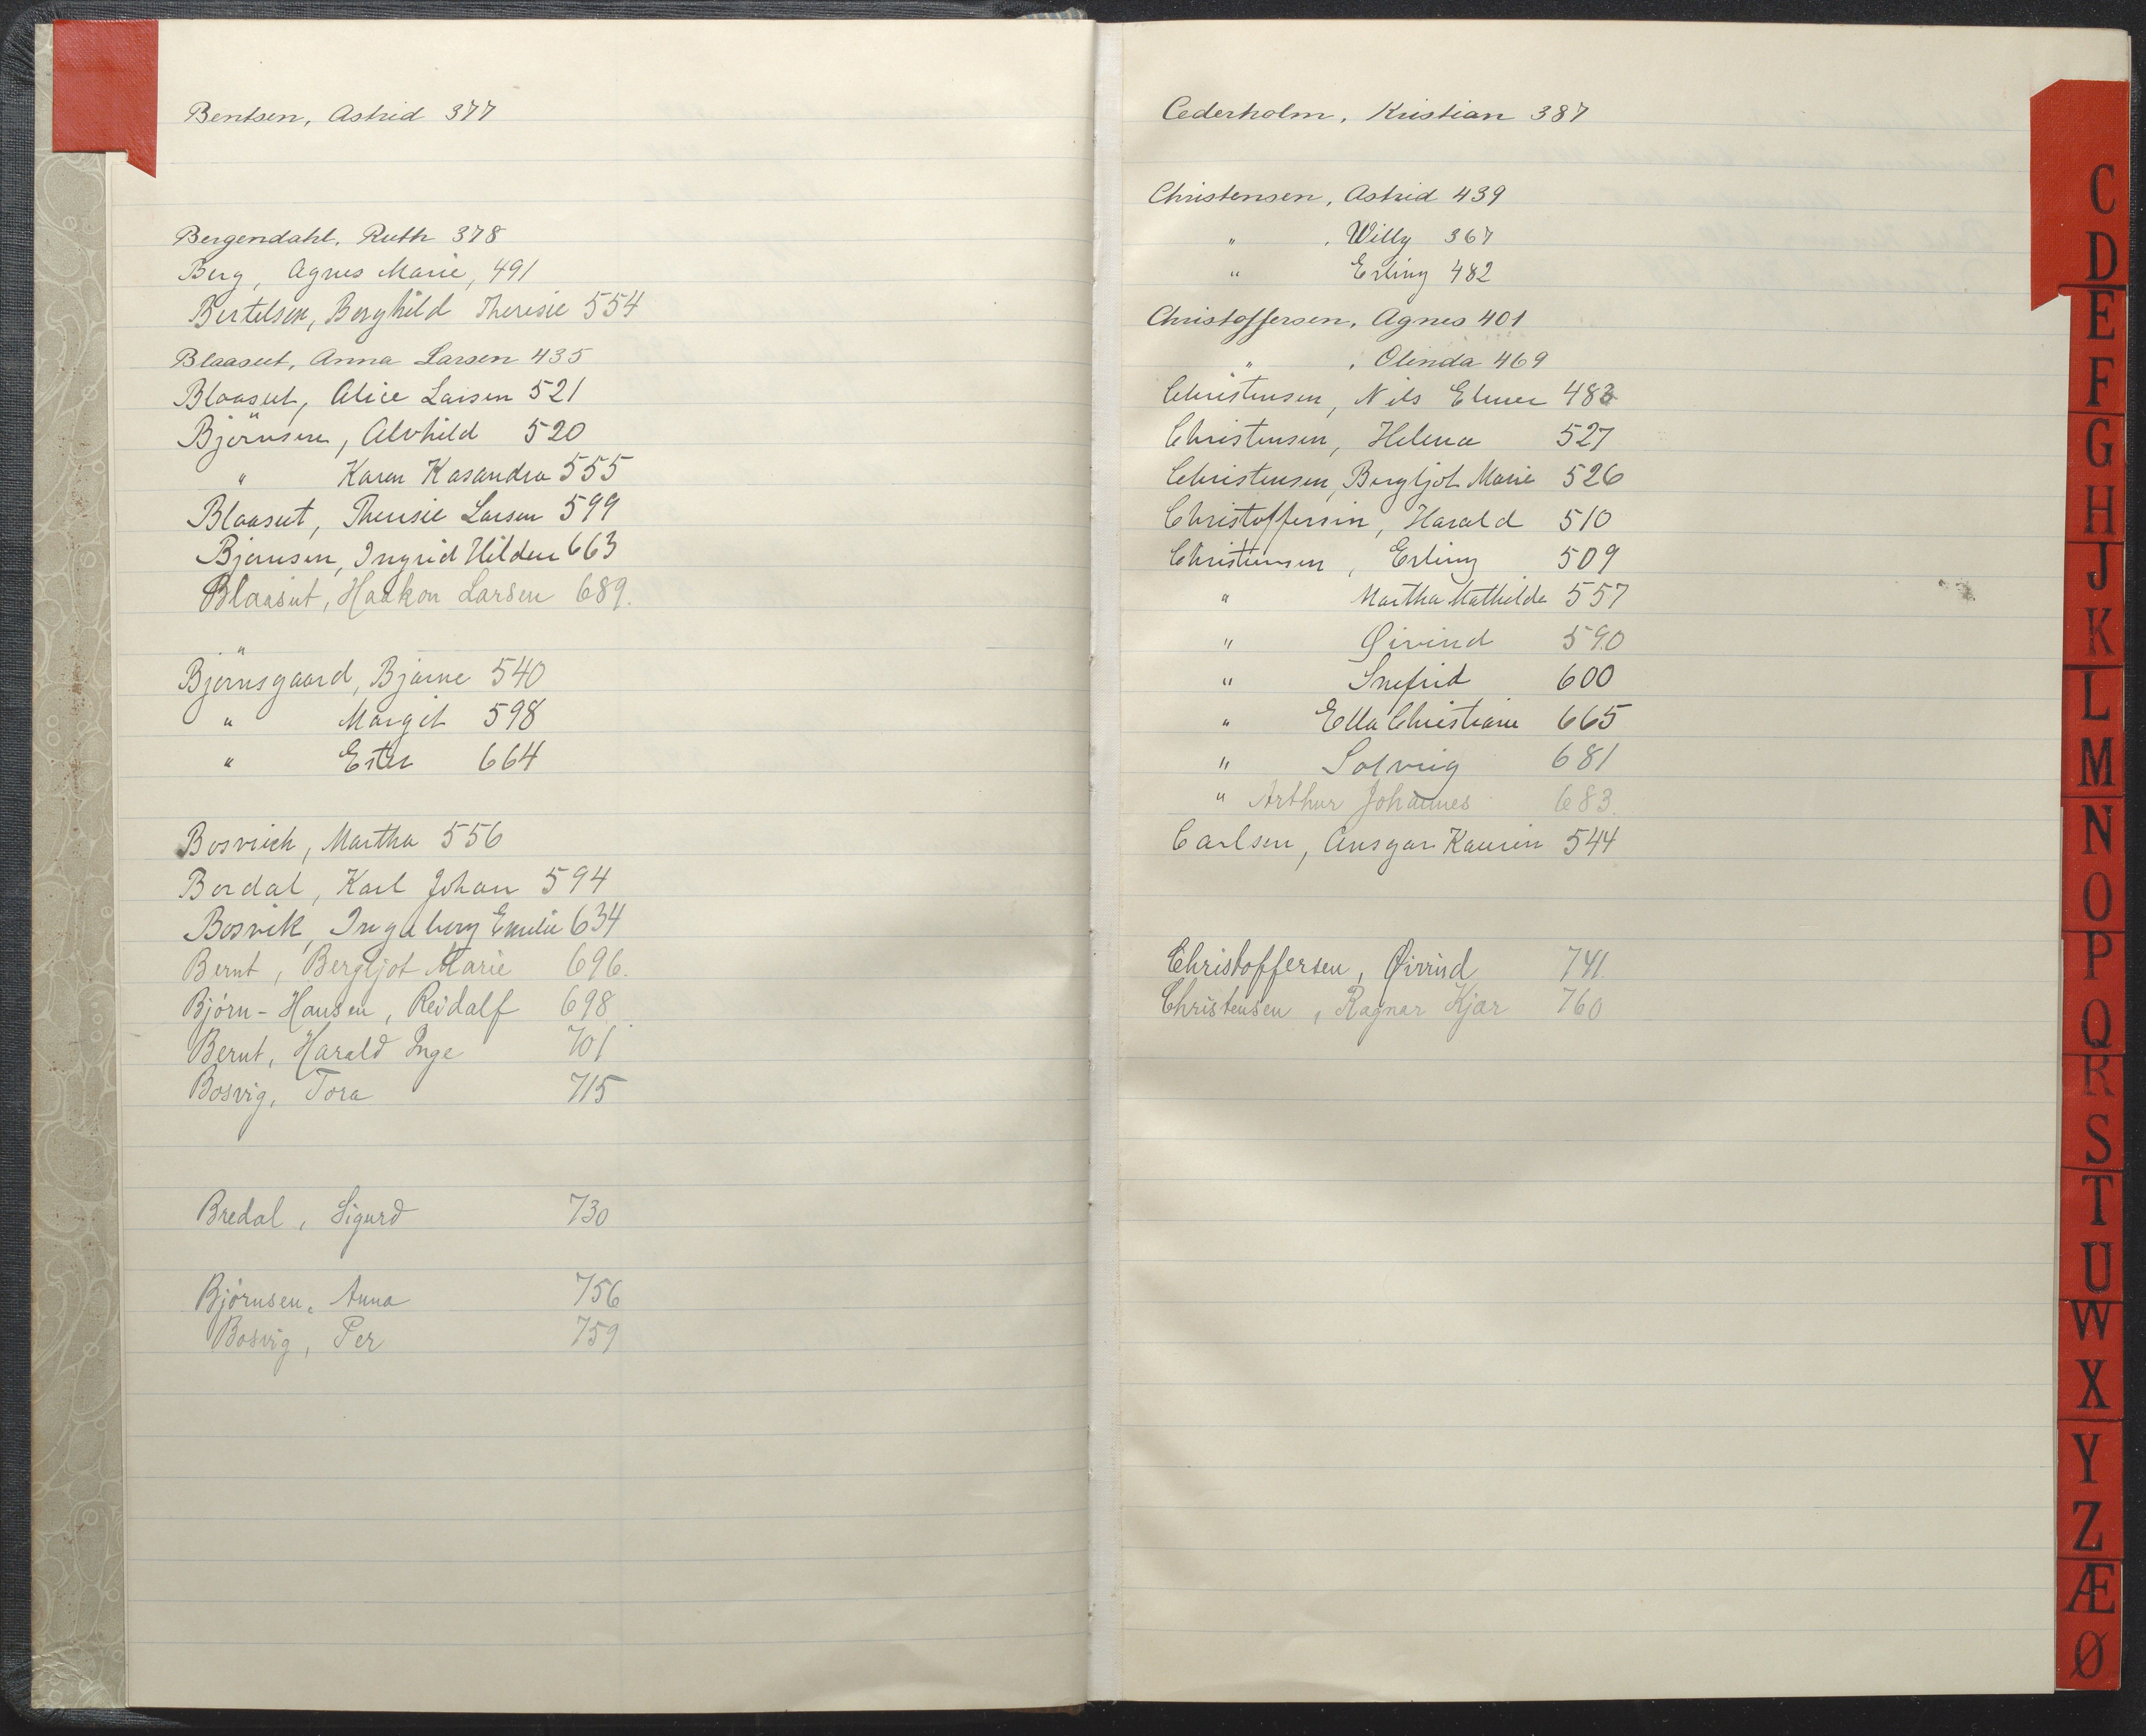 Bentsen, Astrid 377
Bergendahl, Ruth 378
Berg, Agnes Marie, 491
Bertelsen, Borghild Theresie 554
Blaasut, Anna Larsen 435
Blaasut, Alice Larsen 521
Björnsen, Alvhild 520
" Karen Kasandra 555
Blaasut, Theresie Larsen 599
Bjørnsen, Ingrid Hildur 663
Blaasut, Haakon Larsen 689.
Björnsgaard, Bjarne 540
" Margit 598
" Ester 664
Bosvick, Martha 556
Bordal, Karl Johan 594
Bosvik, Ingeborg Emilie 634
Bernt, Bergljot Marie 696.
Bjørn-Hansen, Reidalf 698
Bernt, Harald Inge 701
Bosvig, Tora 715
Bredal, Sigurd 730
Bjørnsen, Anna 756
Bosvig, Per 759
Cederholm, Kristian 387
Christensen, Astrid 439
" , Willy 367
" Erling 482
Christoffersen, Agnes 401
" , Olinda 469
Christensen, Nils Elmer 483
Christensen, Helena 527
Christensen, Bergljot Marie 526
Christoffersen, Harald 510
Christensen, Erling 509
" Martha Mathilde 557
" Øivind 590
" Snefrid 600
" Ella Christiane 665
" Solveig 681
" Arthur Johannes 683.
Carlsen, Ansgar Kaurin 544
Christoffersen, Øivind 741.
Christensen, Ragnar Kjær 760
C
D
E
F
G
H
J
K
L
M
N
O
P
Q
R
S
T
U
W
X
Y
Z
Æ
Ø